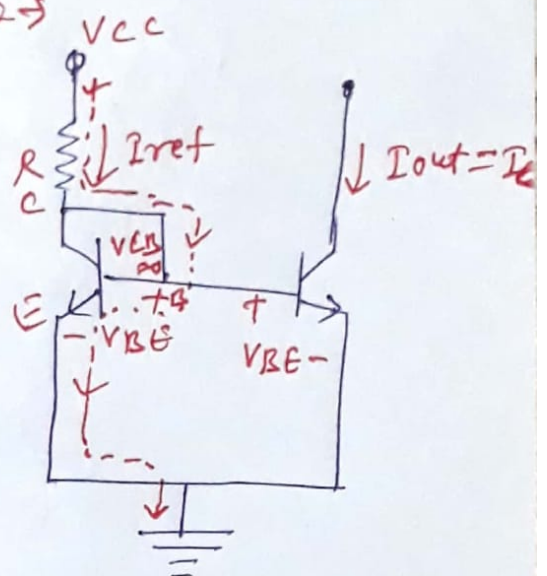 2→
VCC
+
R
Iref
Iout = Ic
C
VCB
+B
+
E
- VBE
VBE -